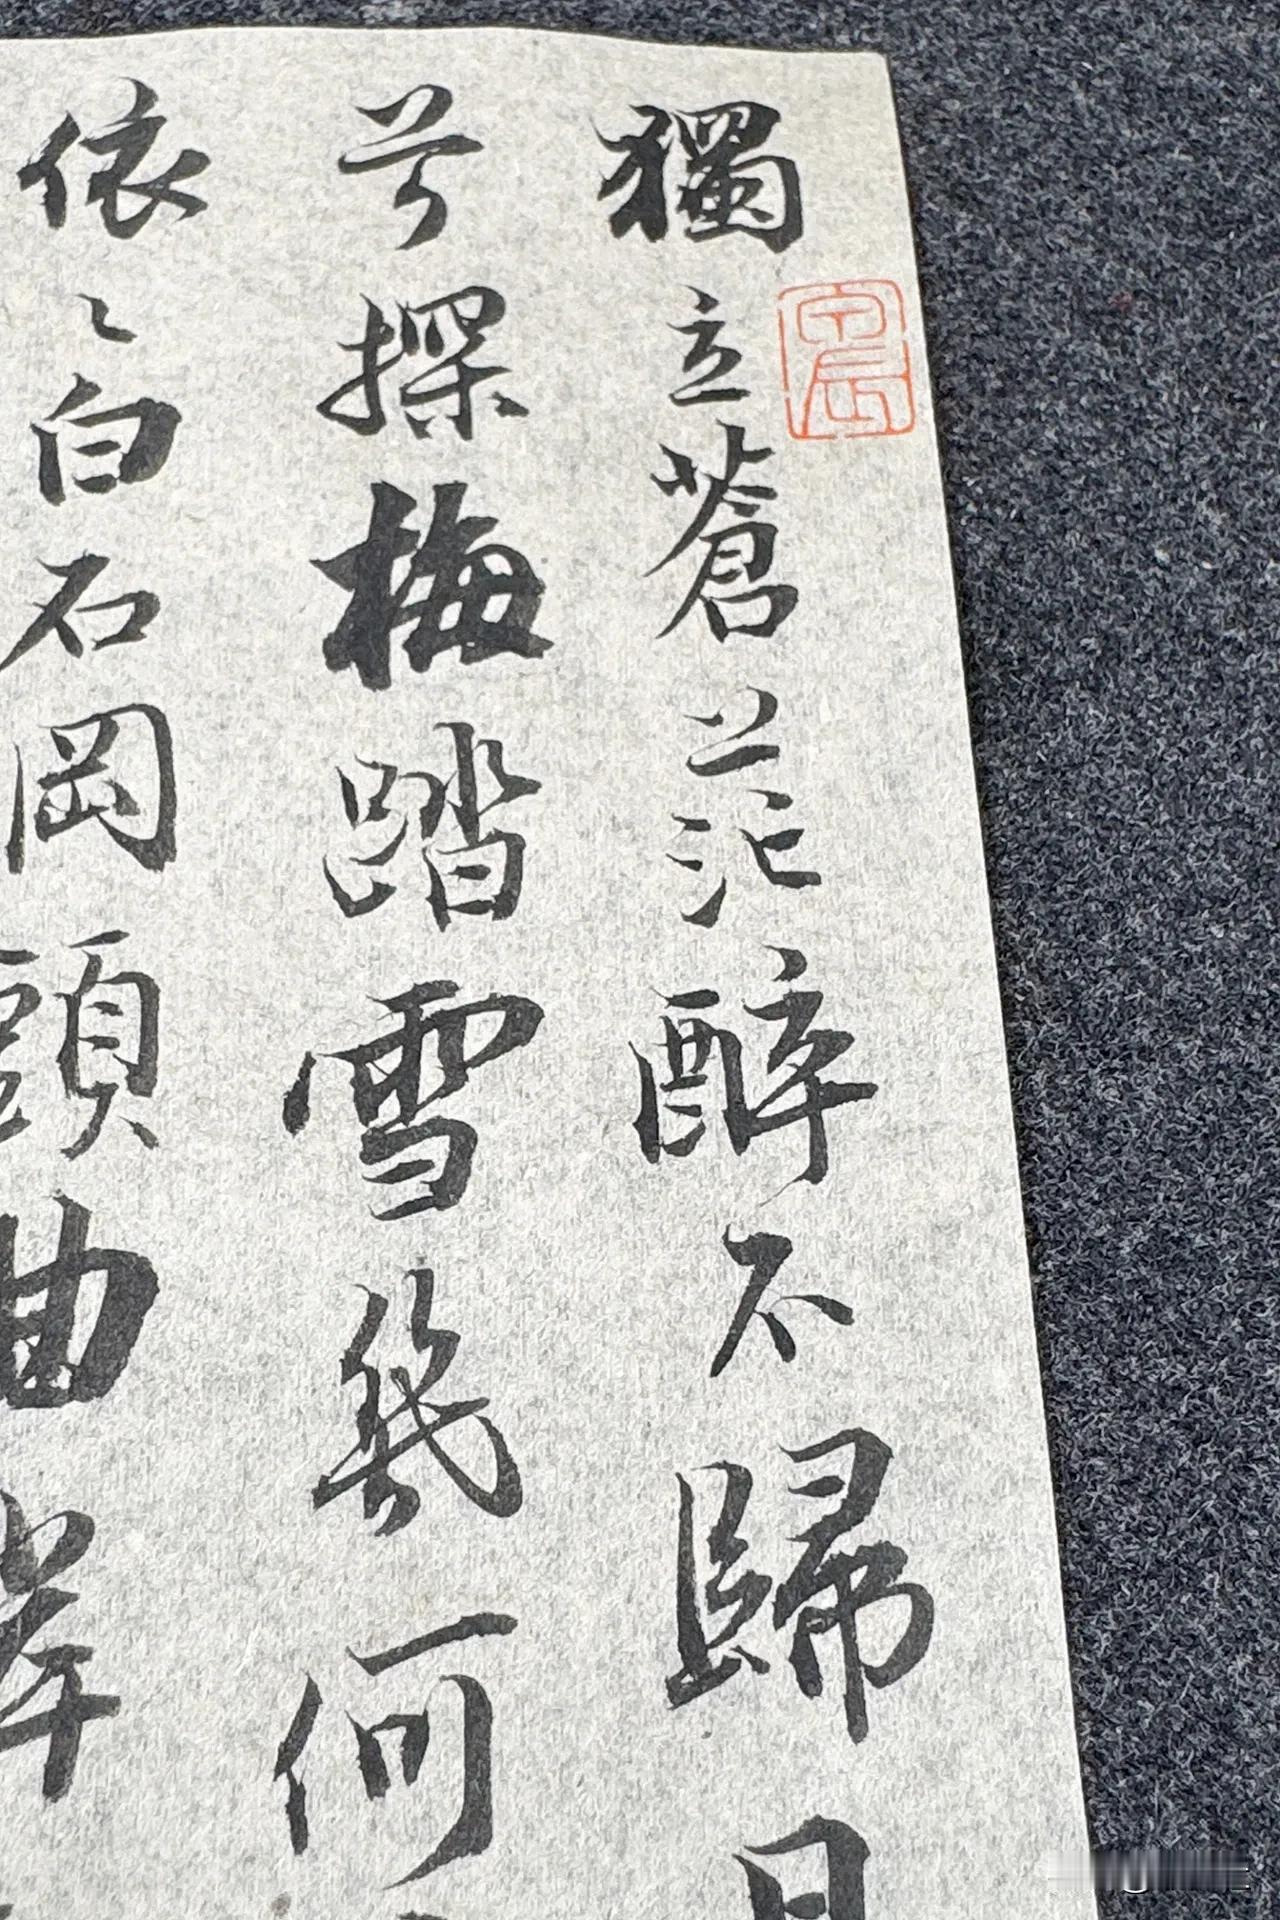 獨立蒼茫醉不歸日
兮探梅踏雪幾何
依〻白石岡頭曲岸
甲辰